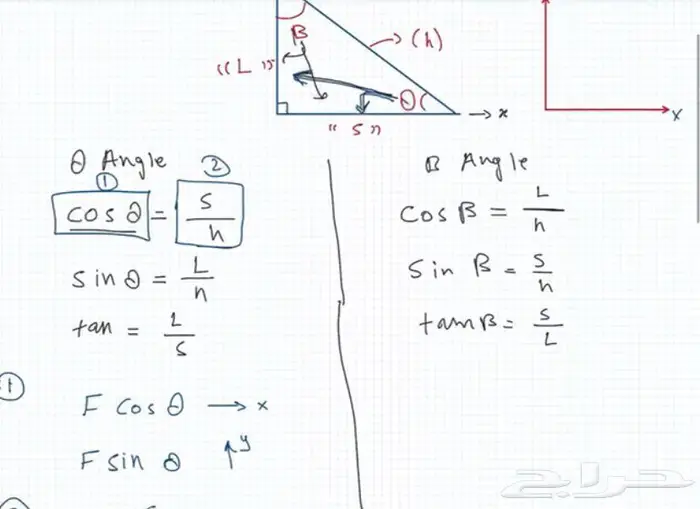 B
(h)
"L"
θ
x
"S"
x
θ Angle
① ②
cos θ = S/h
sin θ = L/h
tan = L/S
B Angle
cos B = L/h
sin B = S/h
tan B = S/L
①
F cos θ → x
F sin θ ↑ y
حراج